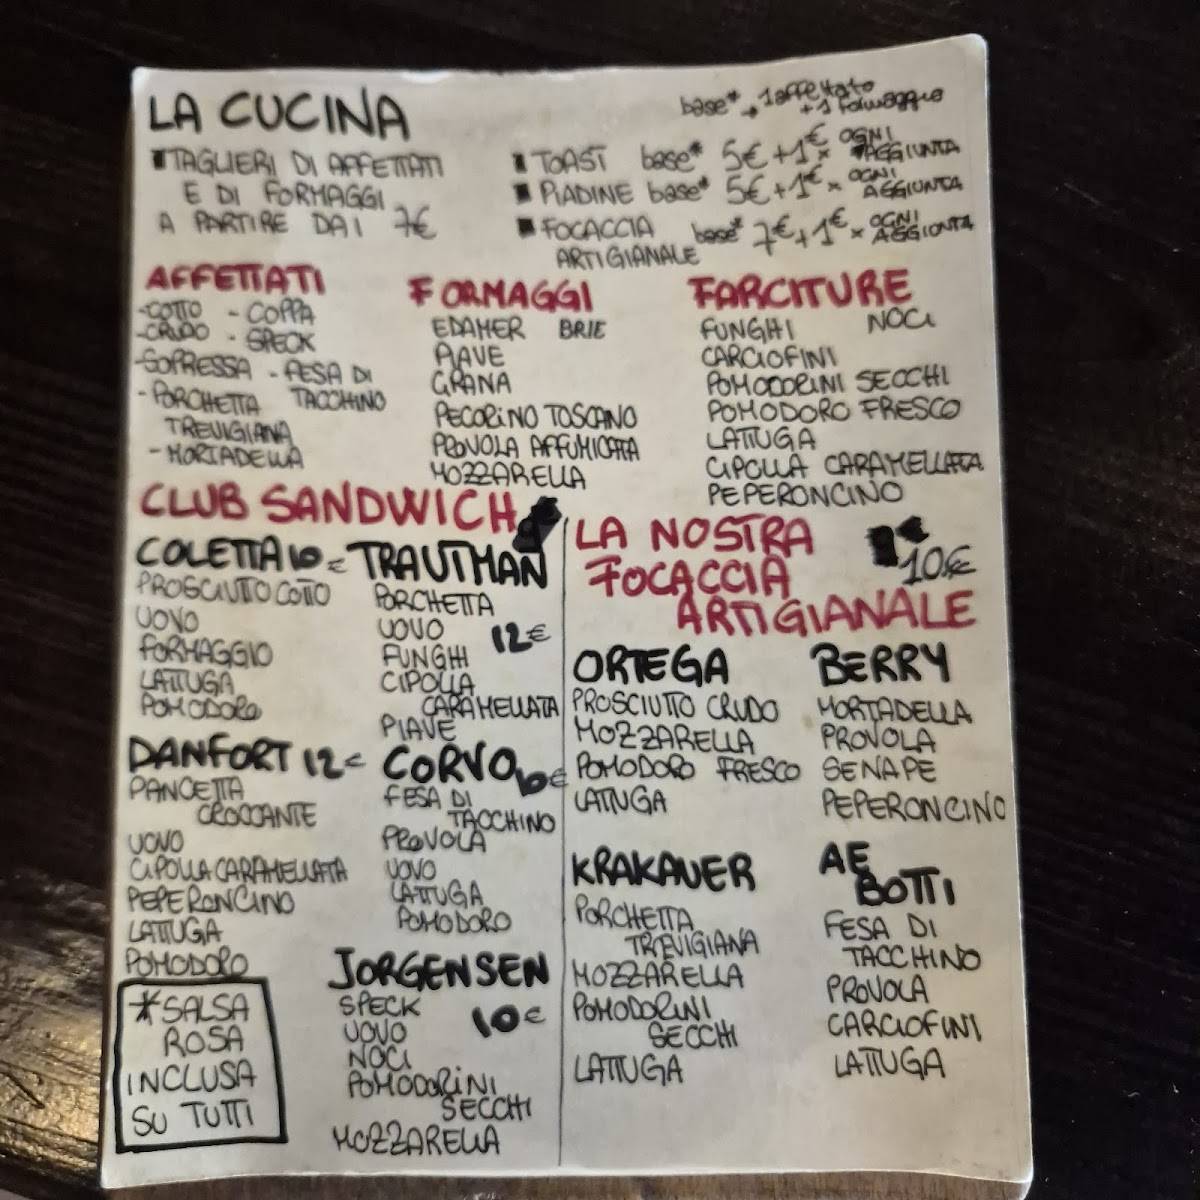 LA CUCINA
base* → 1 affettato
+ 1 formaggio
TAGLIERI DI AFFETTATI
E DI FORMAGGI
A PARTIRE DAI 7€
TOAST base* 5€ + 1€ x OGNI AGGIUNTA
PIADINE base* 5€ + 1€ x OGNI AGGIUNTA
FOCACCIA base* 7€ + 1€ x OGNI AGGIUNTA
ARTIGIANALE
AFFETTATI
- COTTO - COPPA
- CRUDO - SPECK
- SOPRESSA - FESA DI
TACCHINO
- PORCHETTA
TREVIGIANA
- MORTADELLA
FORMAGGI
EDAMER BRIE
PIAVE
GRANA
PECORINO TOSCANO
PROVOLA AFFUMICATA
MOZZARELLA
FARCITURE
FUNGHI NOCI
CARCIOFINI
POMODORINI SECCHI
POMODORO FRESCO
LATTUGA
CIPOLLA CARAMELLATA
PEPERONCINO
CLUB SANDWICH
COLETTA 10€
PROSCIUTTO COTTO
UOVO
FORMAGGIO
LATTUGA
POMODORO
TRAUTMAN
PORCHETTA
UOVO 12€
FUNGHI
CIPOLLA
CARAMELLATA
PIAVE
DANFORT 12€
PANCETTA
CROCCANTE
UOVO
CIPOLLA CARAMELLATA
PEPERONCINO
LATTUGA
POMODORO
CORVO 10€
FESA DI
TACCHINO
PROVOLA
UOVO
LATTUGA
POMODORO
JORGENSEN
SPECK 10€
UOVO
NOCI
POMODORINI
SECCHI
MOZZARELLA
*SALSA
ROSA
INCLUSA
SU TUTTI
LA NOSTRA
FOCACCIA 10€
ARTIGIANALE
ORTEGA
PROSCIUTTO CRUDO
MOZZARELLA
POMODORO FRESCO
LATTUGA
BERRY
MORTADELLA
PROVOLA
SENAPE
PEPERONCINO
KRAKAUER
PORCHETTA
TREVIGIANA
MOZZARELLA
POMODORINI
SECCHI
LATTUGA
AE
BOTTI
FESA DI
TACCHINO
PROVOLA
CARCIOFINI
LATTUGA